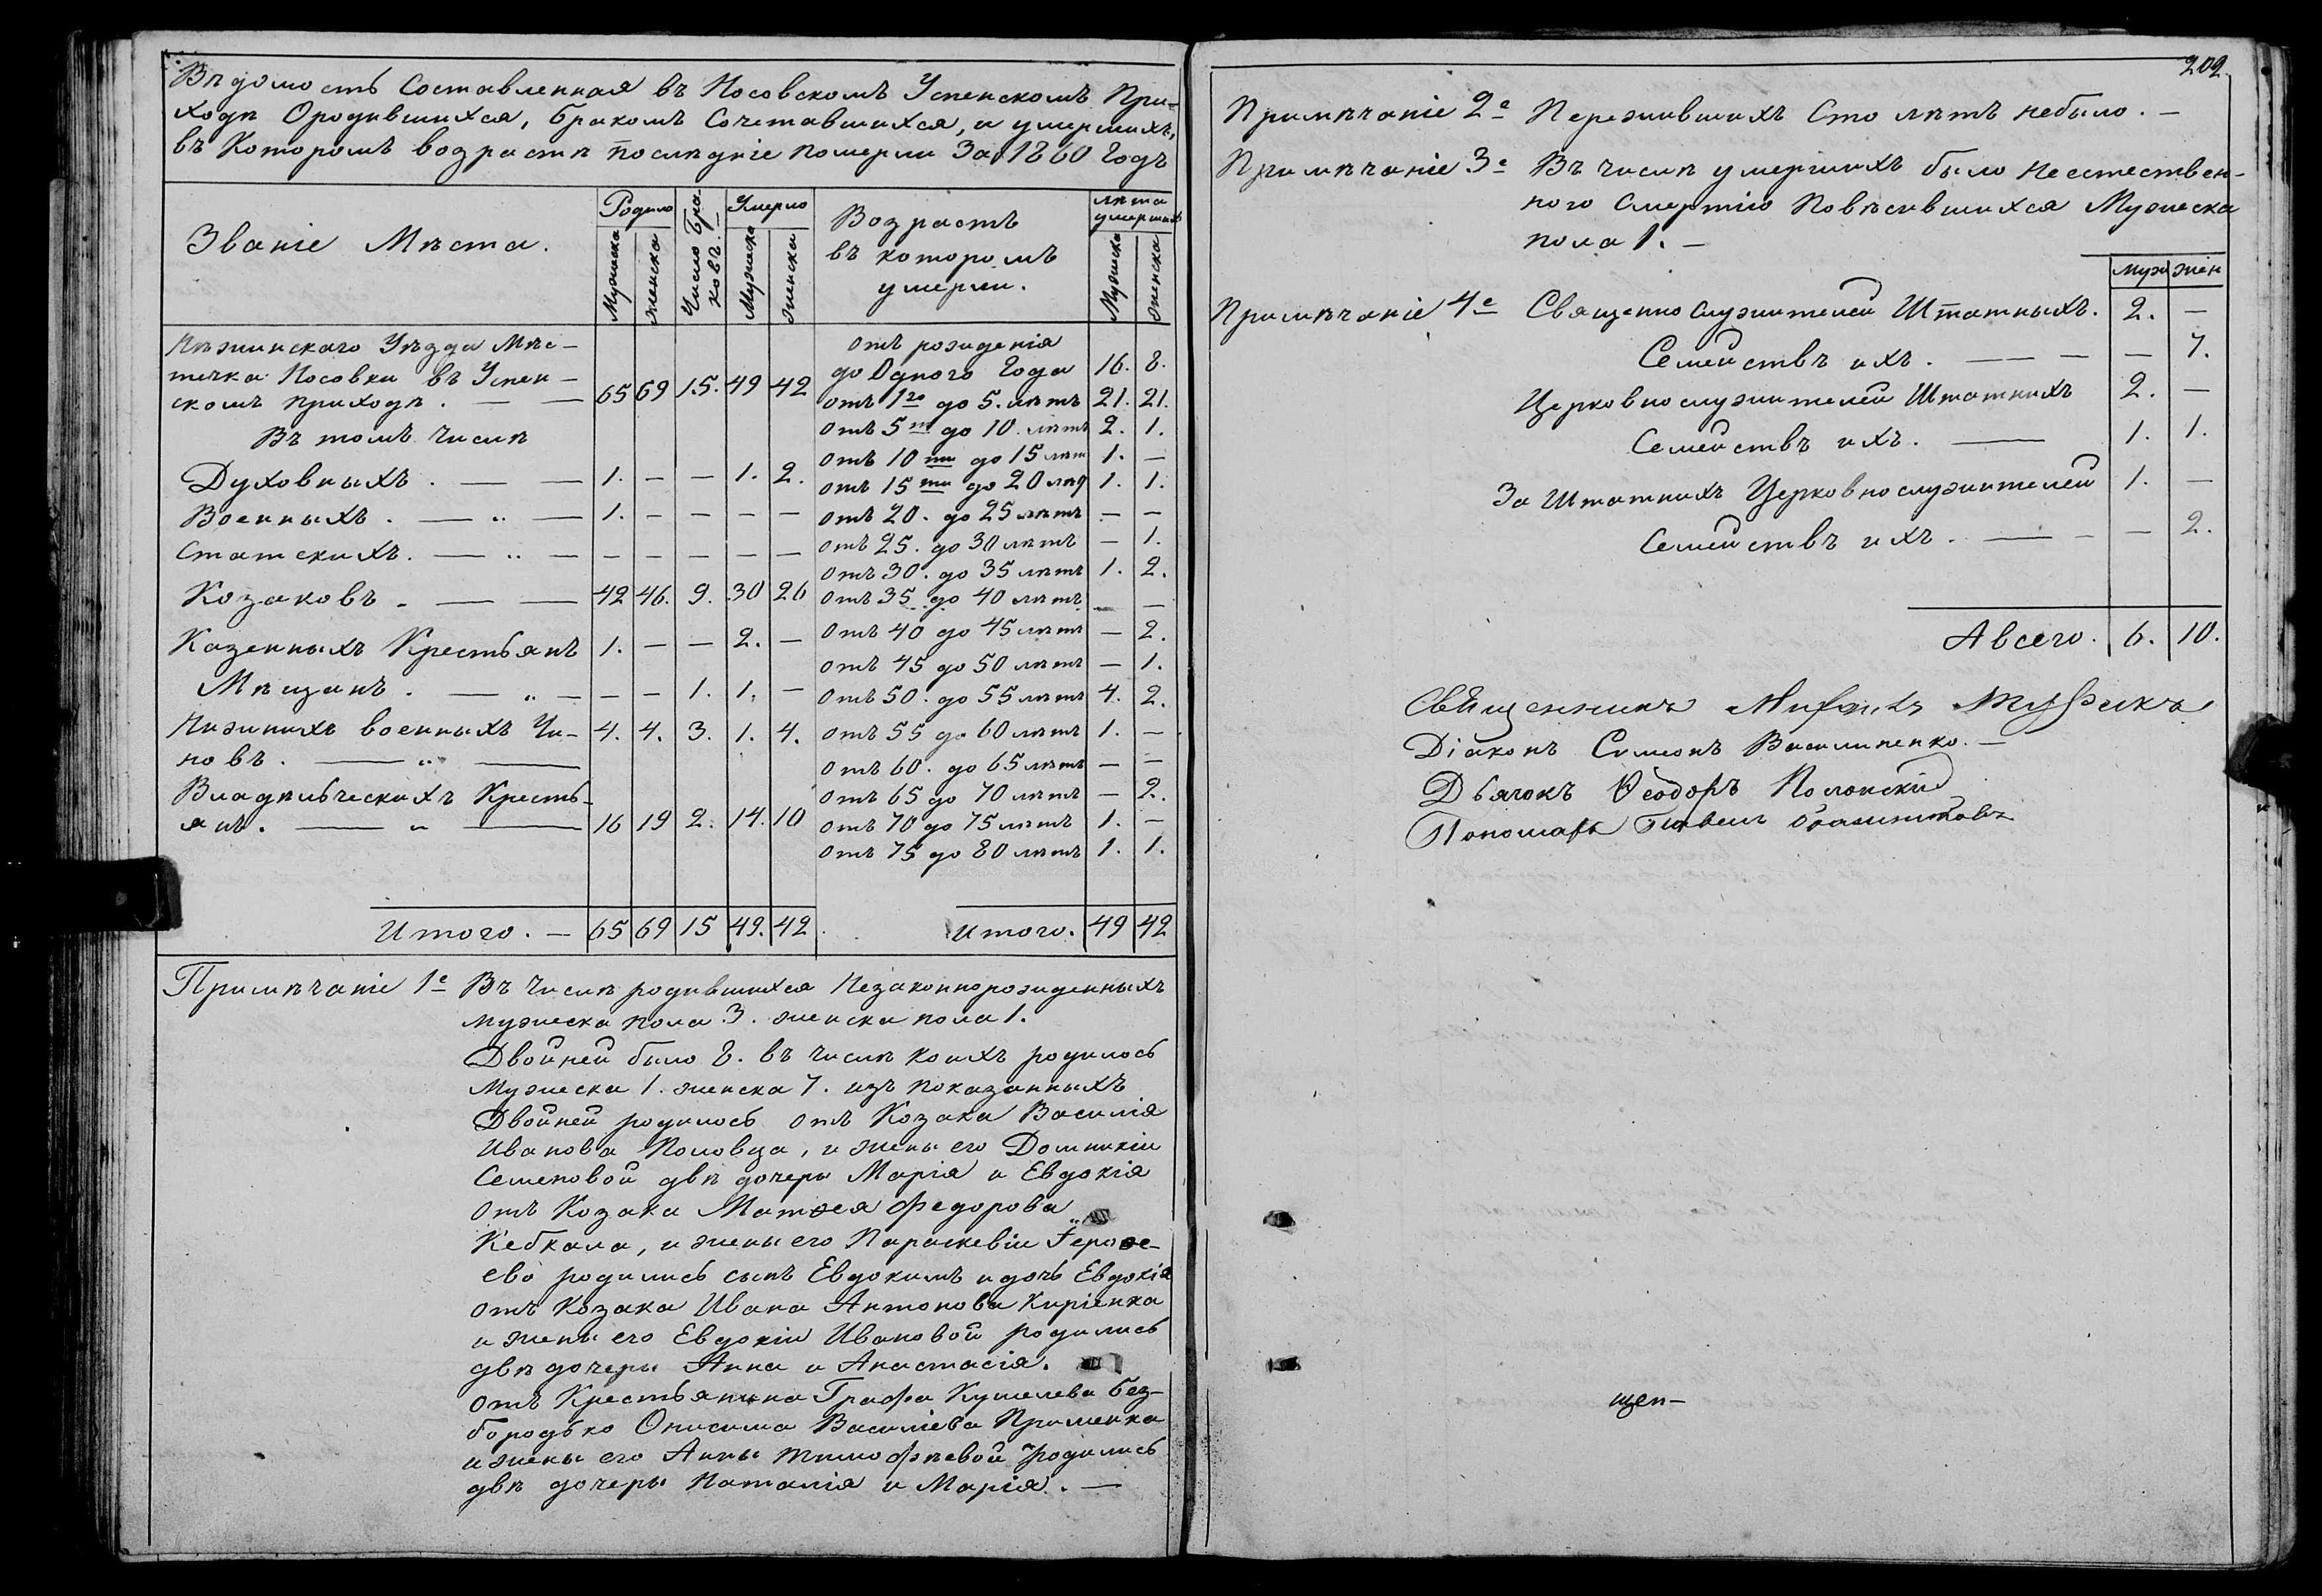 Вѣдомость Составленная въ Носовскомъ Успенскомъ При-
ходѣ Ородившихся, бракомъ Сочетавшихся, и умершихъ,
въ Которомъ возрастѣ послѣдніе померли За 1860 Годъ
Званіе Мѣста. Родило Число бра-ковъ. Умерло Возрастъ въ которомъ умерли. лѣта умершихъ
Мужеска женска Мужеска женска Мужеска женска
Нѣжинскаго Уѣзда Мѣс-
течка Носовки въ Успен-
скомъ приходѣ. — — 65 69 15. 49 42
Въ томъ числѣ
Духовныхъ. — — 1. — — 1. 2.
Военныхъ. — „ — 1. — — — —
Статскихъ. — „ — — — — — —
Козаковъ. — — 42 46. 9. 30 26
Казенныхъ Крестьянъ 1. — — 2. —
Мѣщанъ. — „ — — — 1. 1. —
Нижнихъ военныхъ Чи- 4. 4. 3. 1. 4.
новъ. — „ —
Владѣльческихъ Кресть-
янъ. — „ — 16 19 2. 14. 10
Итого. — 65 69 15 49. 42
отъ рожденія
до Одного Года 16. 8.
отъ 1го до 5. лѣтъ 21. 21.
отъ 5ти до 10. лѣтъ 2. 1.
отъ 10ти до 15 лѣт 1. —
отъ 15ти до 20 лѣт 1. 1.
отъ 20. до 25 лѣтъ — —
отъ 25. до 30 лѣтъ — 1.
отъ 30. до 35 лѣтъ 1. 2.
отъ 35 до 40 лѣтъ — —
отъ 40 до 45 лѣтъ — 2.
отъ 45 до 50 лѣтъ — 1.
отъ 50. до 55 лѣтъ 4. 2.
отъ 55 до 60 лѣтъ 1. —
отъ 60. до 65 лѣтъ — —
отъ 65 до 70 лѣтъ — 2.
отъ 70 до 75 лѣтъ 1. —
отъ 75 до 80 лѣтъ 1. 1.
Итого. 49 42
Примѣчаніе 1е Въ Числѣ родившихся Незаконнорожденныхъ
мужеска пола 3. женска пола 1.
Двойней было 8. въ числѣ коихъ родилось
Мужеска 1. женска 7. изъ показанныхъ
Двойней родилось отъ Козака Василія
Иванова Половца, и жены его Домникіи
Семеновой двѣ дочеры Марія и Евдокія
отъ Козака Матѳея Федорова
Кебкала, и жены его Параскевіи Ероѳе-
ево родились сынъ Евдокимъ и дочь Евдокія
отъ Козака Ивана Антонова Киріенка
и жены его Евдокіи Ивановой родились
двѣ дочеры Анна и Анастасія.
отъ Крестьянина Графа Кушелева Без-
бородько Онисима Василіева Применка
и жены его Анны Тимофѣевой родились
двѣ дочеры Наталія и Марія. —
202.
Примѣчаніе 2е Пережившихъ Сто лѣтъ небыло. —
Примѣчаніе 3е Въ числѣ умершихъ было Неестествен-
ного Смертію Повѣсившихся Мужеска
пола 1. —
муж жен
Примѣчаніе 4е Священно служителей Штатныхъ. 2. —
Семействъ ихъ. — — — — 7.
Церковнослужителей Штатныхъ 2. —
Семействъ ихъ. — 1. 1.
За Штатныхъ Церковнослужителей 1. —
Семействъ ихъ. — — — 2.
А всего. 6. 10.
Священникъ
Діаконъ Симеонъ Василиненко. —
Дьячокъ Ѳеодоръ Полонскій
Пономарь Павелъ
щен—